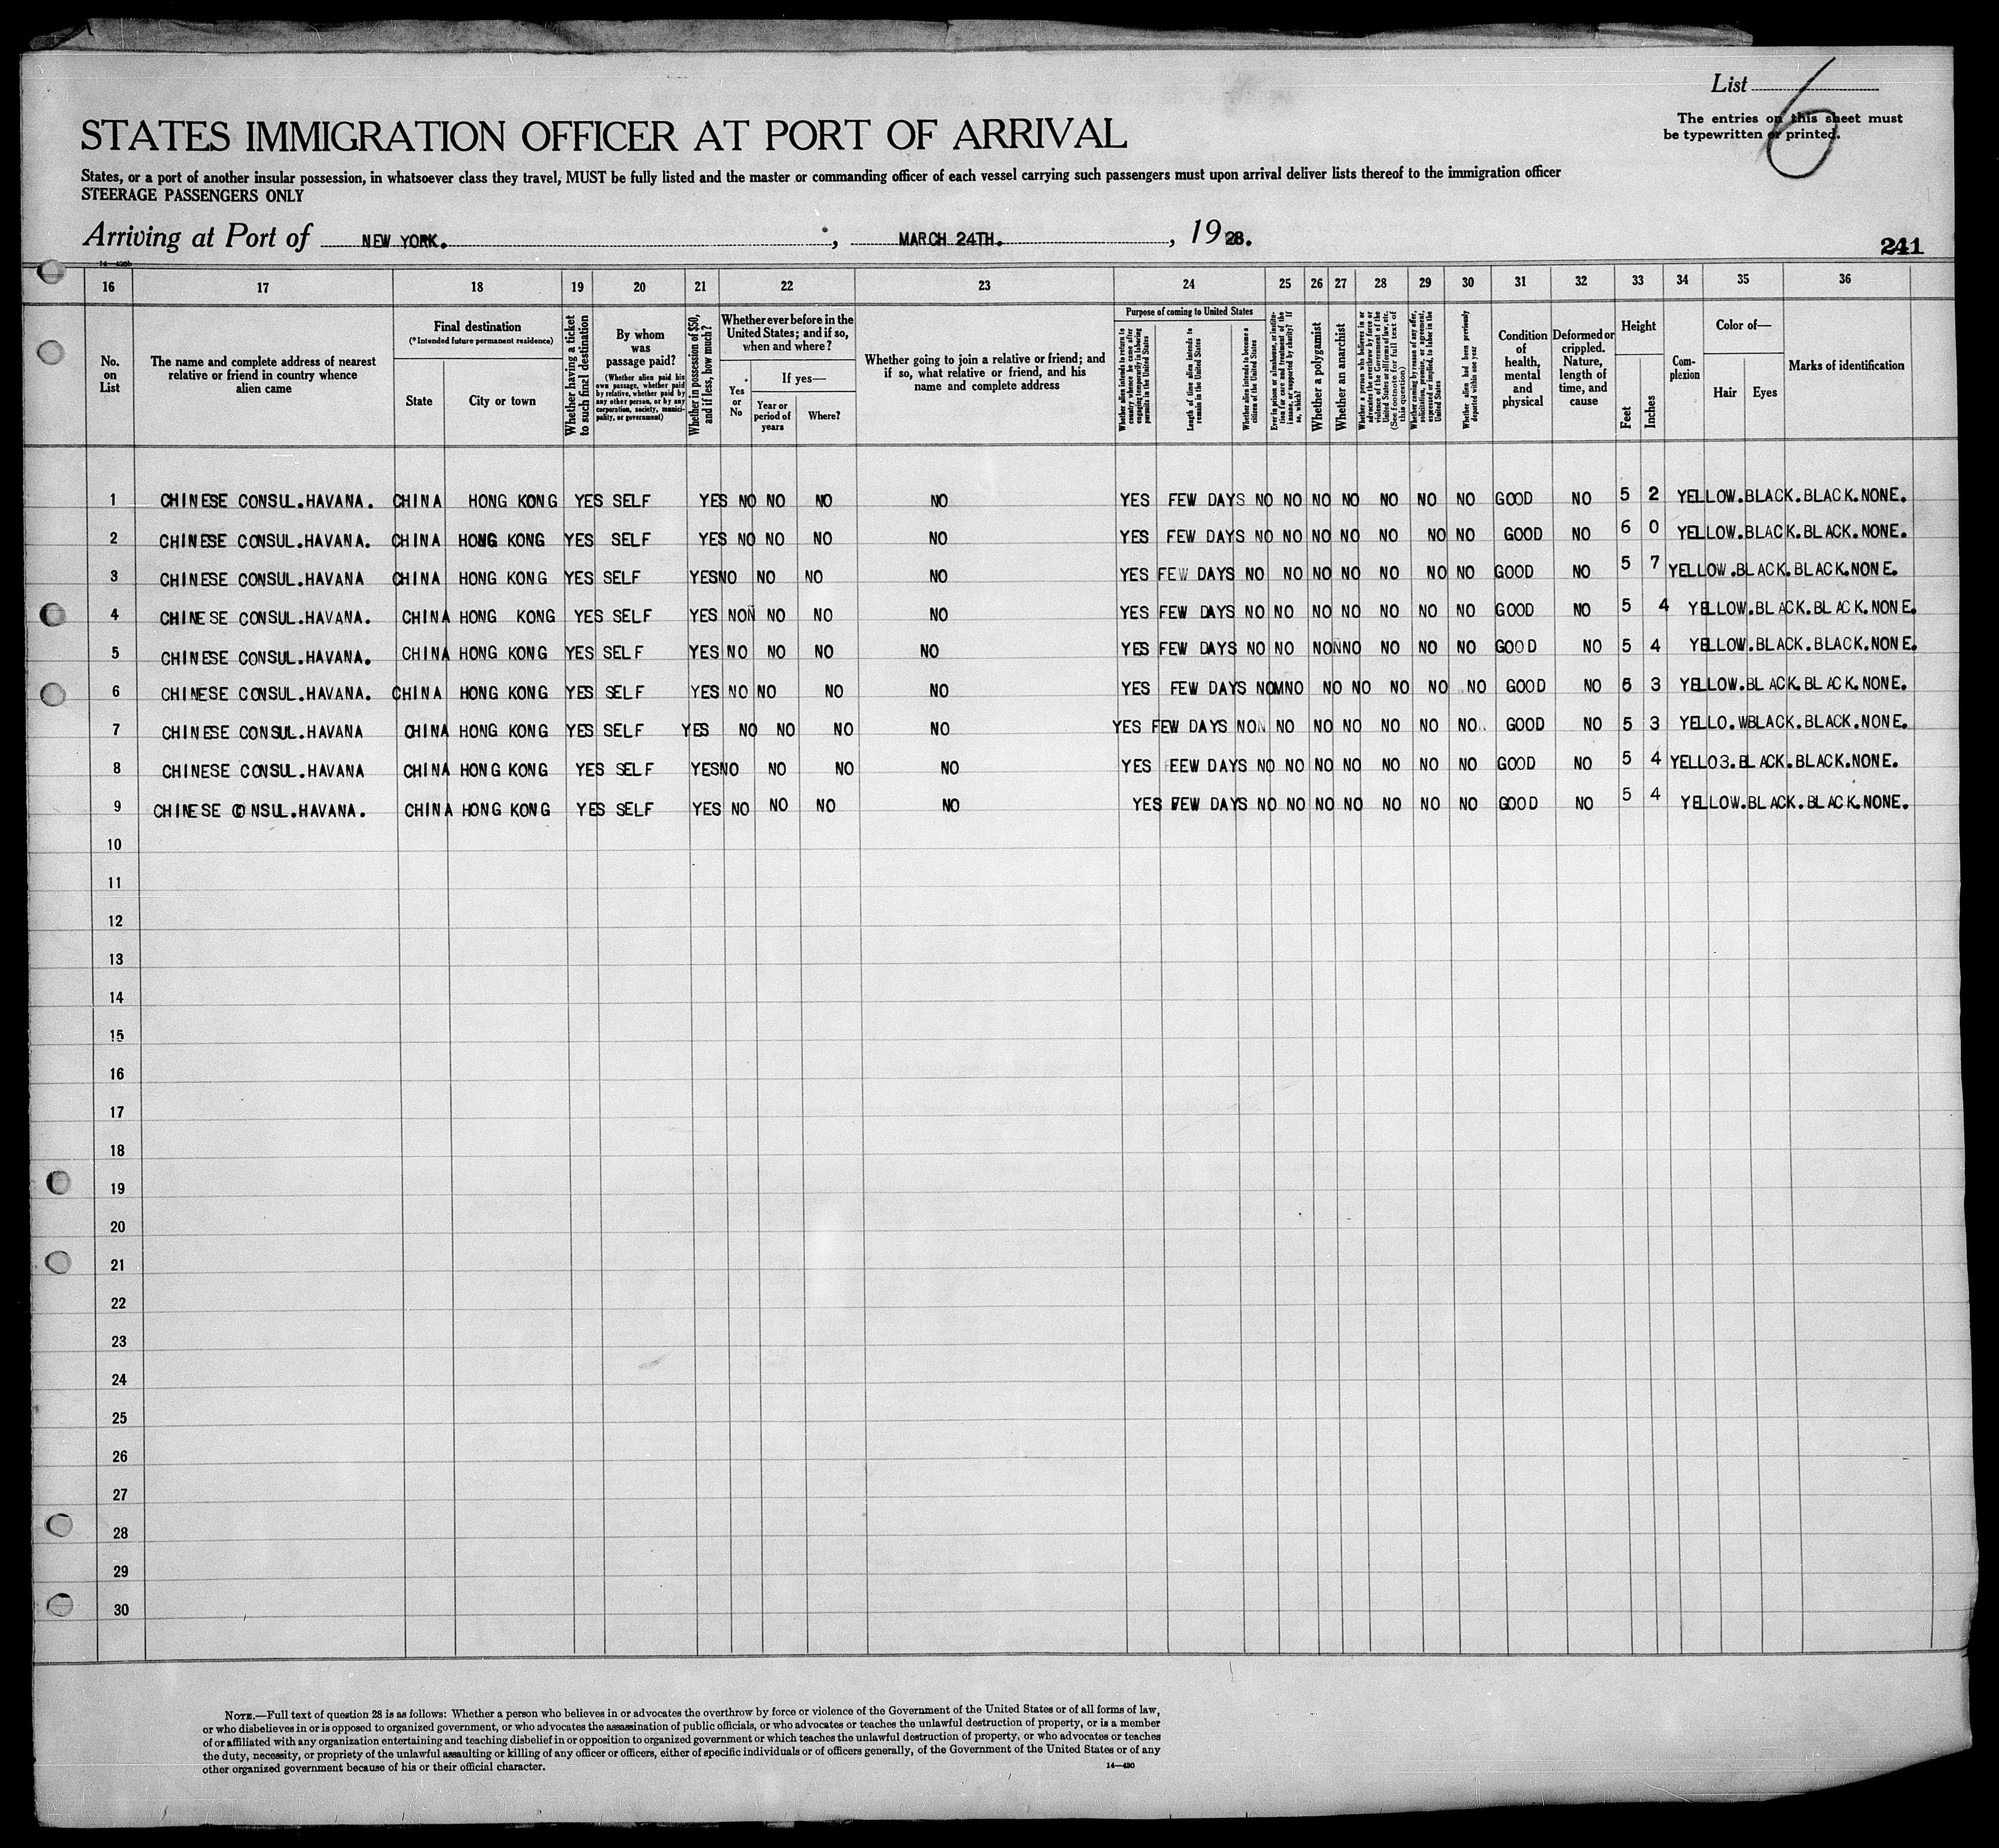 List 6
The entries on this sheet must
be typewritten or printed.
STATES IMMIGRATION OFFICER AT PORT OF ARRIVAL
States, or a port of another insular possession, in whatsoever class they travel, MUST be fully listed and the master or commanding officer of each vessel carrying such passengers must upon arrival deliver lists thereof to the immigration officer
STEERAGE PASSENGERS ONLY
Arriving at Port of NEW YORK. , MARCH 24TH. , 1928.
241
16 17 18 19 20 21 22 23 24 25 26 27 28 29 30 31 32 33 34 35 36
No. on List
The name and complete address of nearest relative or friend in country whence alien came
Final destination
(*Intended future permanent residence)
State
City or town
Whether having a ticket to such final destination
By whom was passage paid?
(Whether alien paid his own passage, whether paid by relative, whether paid by any other person, or by any corporation, society, municipality, or government)
Whether in possession of $50, and if less, how much?
Whether ever before in the United States; and if so, when and where?
Yes or No
If yes—
Year or period of years
Where?
Whether going to join a relative or friend; and if so, what relative or friend, and his name and complete address
Purpose of coming to United States
Whether alien intends to return to country whence he came after engaging temporarily in laboring pursuits in the United States
Length of time alien intends to remain in the United States
Whether alien intends to become a citizen of the United States
Ever in prison or almshouse, or institution for care and treatment of the insane, or supported by charity? If so, which?
Whether a polygamist
Whether an anarchist
Whether a person who believes in or advocates the overthrow by force or violence of the Government of the United States or all forms of law, etc. (See footnote for full text of this question)
Whether coming by reason of any offer, solicitation, promise, or agreement, expressed or implied, to labor in the United States
Whether alien had been previously deported within one year
Condition of health, mental and physical
Deformed or crippled. Nature, length of time, and cause
Height
Feet
Inches
Complexion
Color of—
Hair
Eyes
Marks of identification
1 CHINESE CONSUL.HAVANA. CHINA HONG KONG YES SELF YES NO NO NO NO YES FEW DAYS NO NO NO NO NO NO NO GOOD NO 5 2 YELLOW.BLACK.BLACK.NONE.
2 CHINESE CONSUL.HAVANA. CHINA HONG KONG YES SELF YES NO NO NO NO YES FEW DAYS NO NO NO NO NO NO NO GOOD NO 6 0 YELLOW.BLACK.BLACK.NONE.
3 CHINESE CONSUL.HAVANA CHINA HONG KONG YES SELF YESNO NO NO NO YES FEW DAYS NO NO NO NO NO NO NO GOOD NO 5 7 YELLOW.BLACK.BLACK.NONE.
4 CHINESE CONSUL.HAVANA. CHINA HONG KONG YES SELF YES NON NO NO NO YES FEW DAYS NO NO NO NO NO NO NO GOOD NO 5 4 YELLOW.BLACK.BLACK.NONE.
5 CHINESE CONSUL.HAVANA. CHINA HONG KONG YES SELF YES NO NO NO NO YES FEW DAYS NO NO NONNO NO NO NO GOOD NO 5 4 YELLOW.BLACK.BLACK.NONE.
6 CHINESE CONSUL.HAVANA. CHINA HONG KONG YES SELF YES NO NO NO NO YES FEW DAYS NOMNO NO NO NO NO NO GOOD NO 5 3 YELLOW.BLACK.BLACK.NONE.
7 CHINESE CONSUL.HAVANA CHINA HONG KONG YES SELF YES NO NO NO NO YES FEW DAYS NON NO NO NO NO NO NO GOOD NO 5 3 YELLO.WBLACK.BLACK.NONE.
8 CHINESE CONSUL.HAVANA CHINA HONG KONG YES SELF YESNO NO NO NO YES EEW DAYS NO NO NO NO NO NO NO GOOD NO 5 4 YELLO3.BLACK.BLACK.NONE.
9 CHINESE CONSUL.HAVANA. CHINA HONG KONG YES SELF YES NO NO NO NO YES FEW DAYS NO NO NO NO NO NO NO GOOD NO 5 4 YELLOW.BLACK.BLACK.NONE.
10
11
12
13
14
15
16
17
18
19
20
21
22
23
24
25
26
27
28
29
30
NOTE.—Full text of question 28 is as follows: Whether a person who believes in or advocates the overthrow by force or violence of the Government of the United States or of all forms of law,
or who disbelieves in or is opposed to organized government, or who advocates the assassination of public officials, or who advocates or teaches the unlawful destruction of property, or is a member
of or affiliated with any organization entertaining and teaching disbelief in or opposition to organized government or which teaches the unlawful destruction of property, or who advocates or teaches
the duty, necessity, or propriety of the unlawful assaulting or killing of any officer or officers, either of specific individuals or of officers generally, of the Government of the United States or of any
other organized government because of his or their official character.
14—490